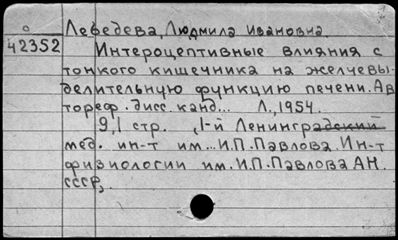 Лебедева, Людмила Ивановна.
42352
Интероцептивные влияния с
тонкого кишечника на желчевы-
делительную функцию печени. Ав
тореф. дисс. канд... Л., 1954.
9,1 стр. ,1-й Ленинградский
мед. ин-т им... И.П. Павлова. Ин-т
физиологии им. И.П. Павлова АН.
СССР,.